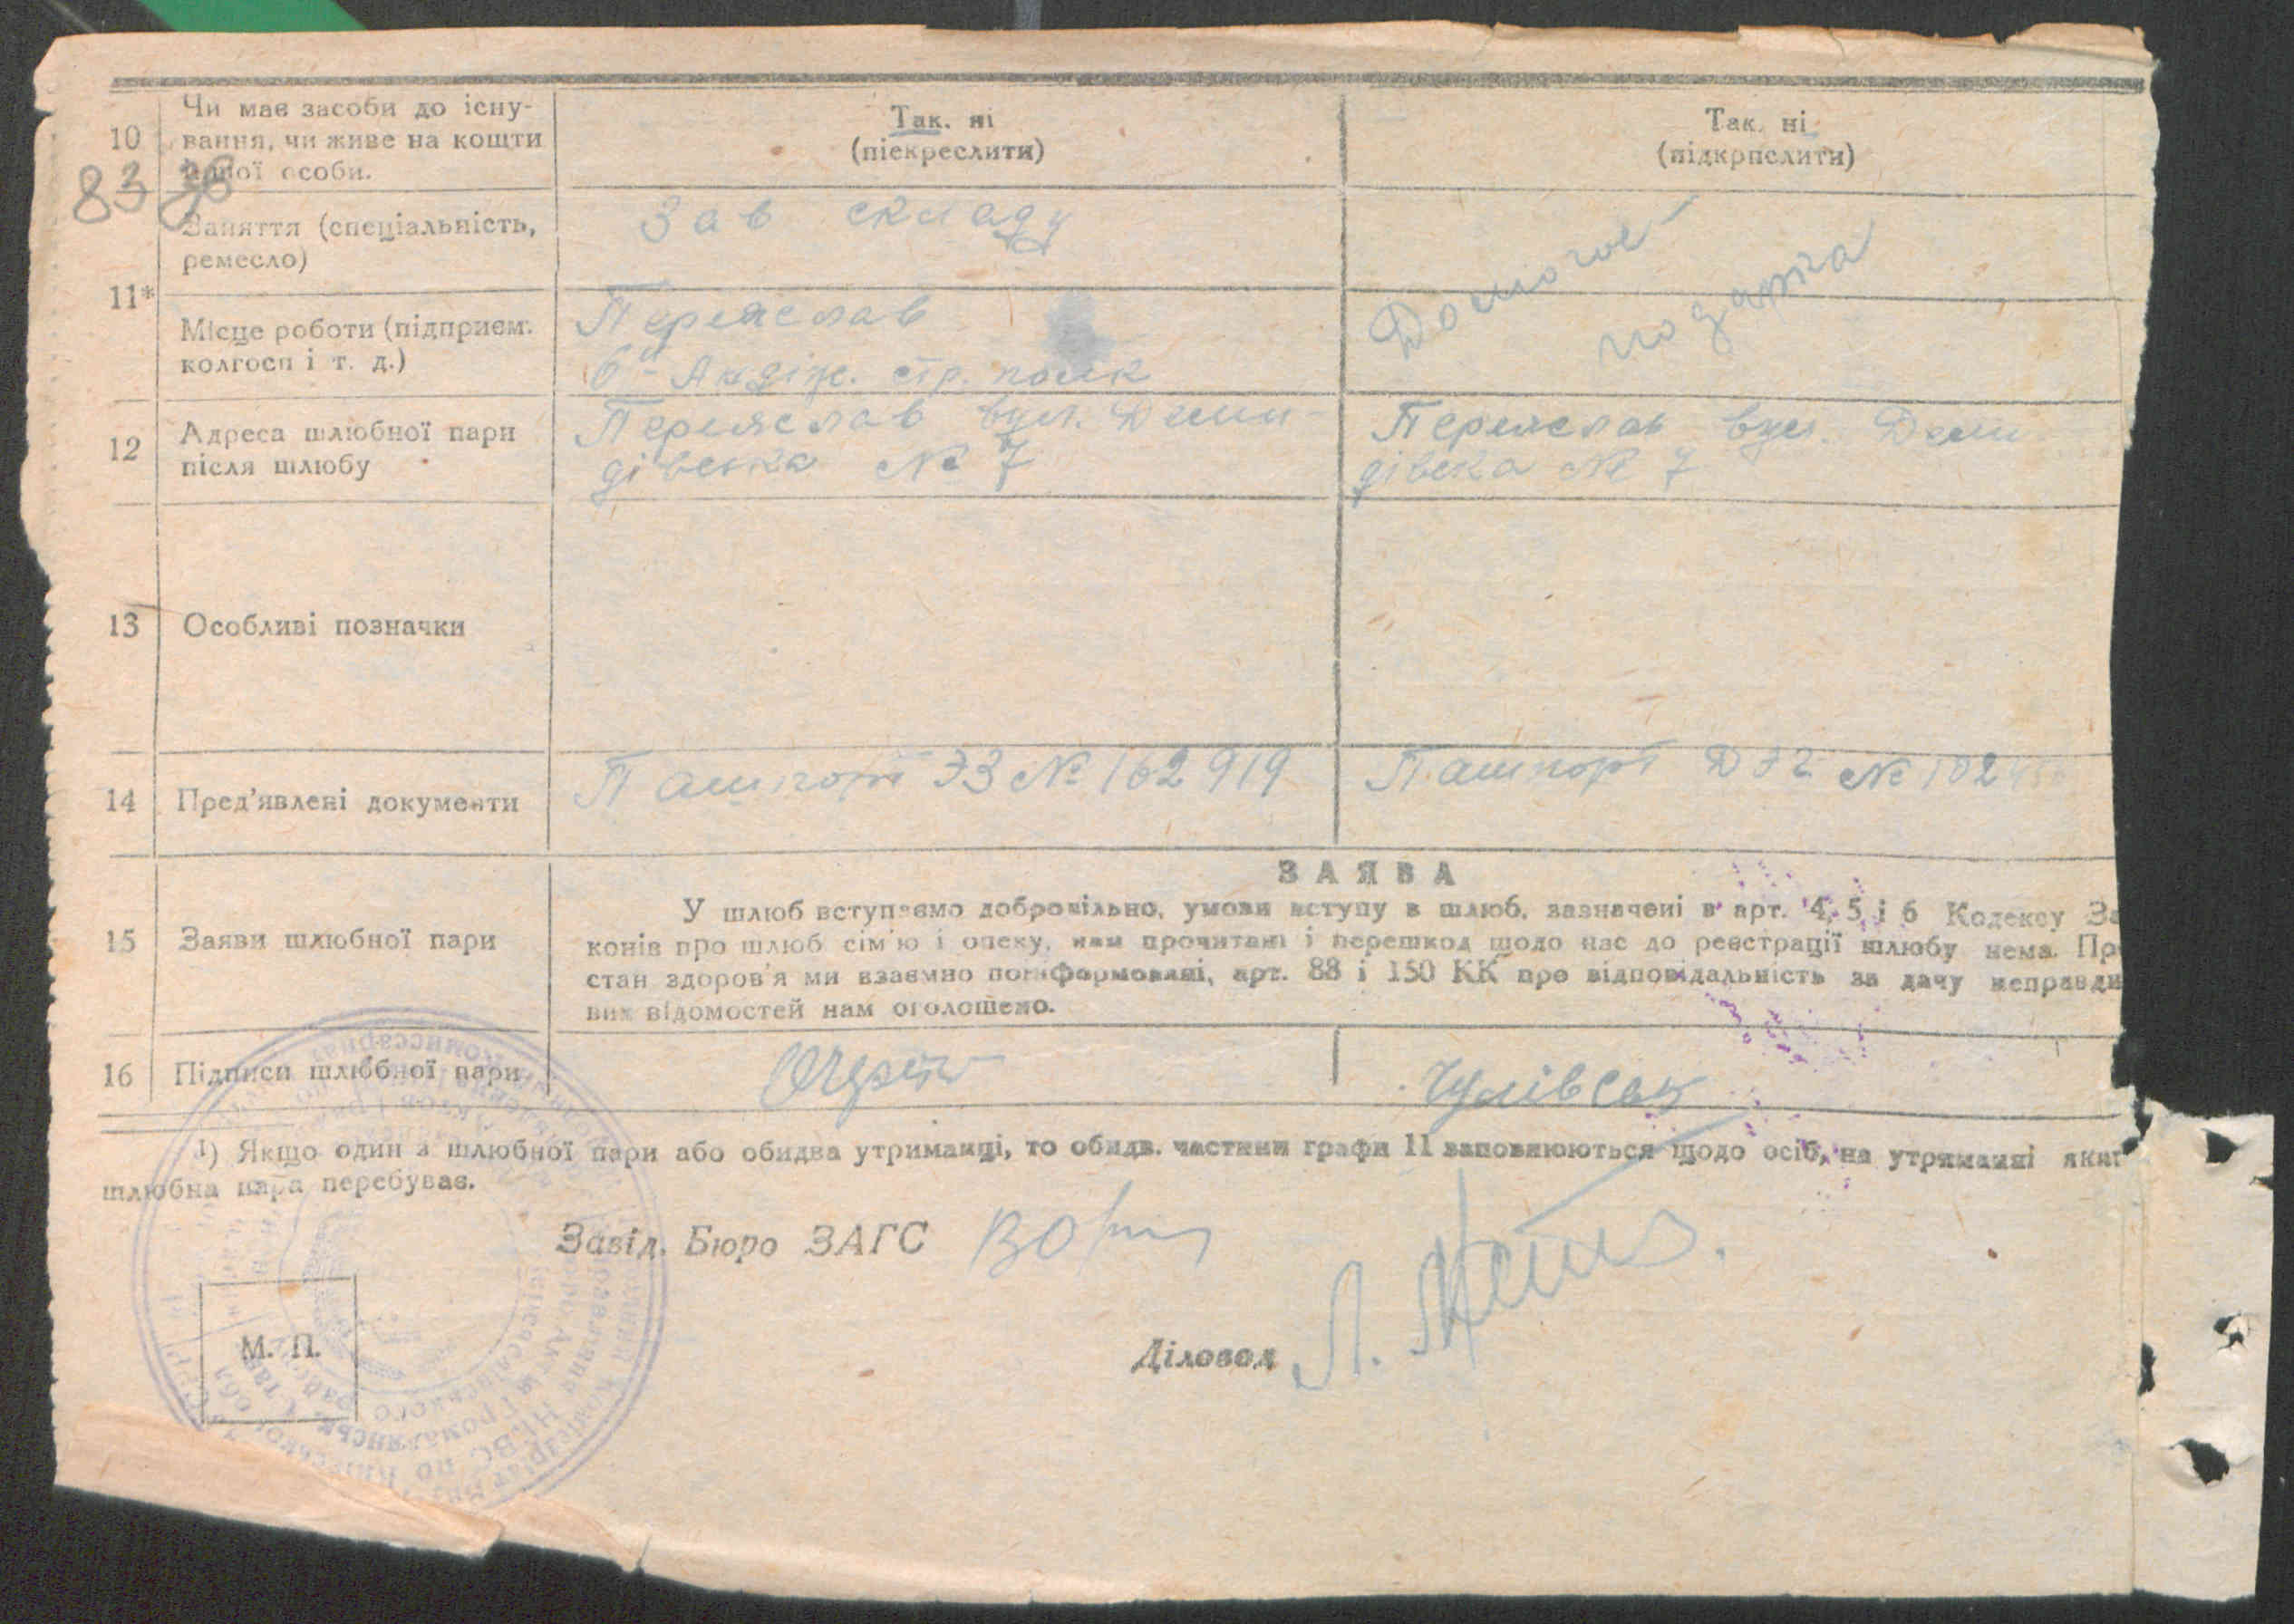 10
Чи має засоби до існу-
вання, чи живе на кошти
іншої особи.
Так, ні
(піекреслити)
Так, ні
(підкрпслити)
83 36
11*
Заняття (спеціальність,
ремесло)
Зав складу
Домогос-
подарка
Місце роботи (підприєм.
колгосп і т. д.)
Переяслав
6й стр. полк
12
Адреса шлюбної пари
після шлюбу
Переяслав вул. Деми-
дівська № 7
Переяслав вул. Деми
дівска № 7
13
Особливі позначки
14
Пред'явлені документи
Пашпорт ЭЗ № 162919
Пашпорт № 102
15
Заяви шлюбної пари
ЗАЯВА
У шлюб вступаємо добровільно, умови вступу в шлюб, зазначені в арт. 4, 5 і 6 Кодексу За
конів про шлюб сім'ю і опеку, нам прочитані і перешкод щодо нас до реєстрації шлюбу нема. Пр
стан здоров'я ми взаємно поінформовані, арт. 88 і 150 КК про відповідальність за дачу неправди
вих відомостей нам оголошено.
16
Підписи шлюбної пари
1) Якщо один з шлюбної пари або обидва утриманці, то обидв. частини графи 11 заповнюються щодо осіб, на утриманні яких
шлюбна пара перебуває.
Завід. Бюро ЗАГС
Діловод
М. П.